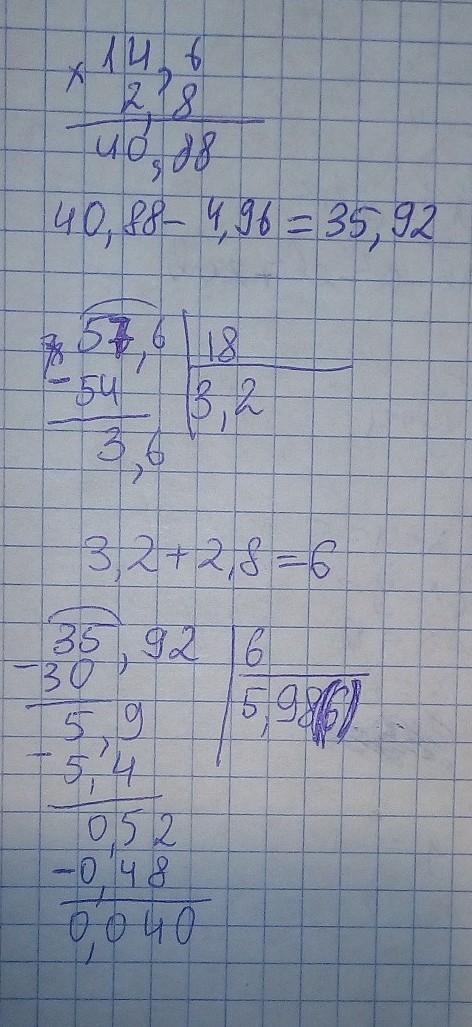 × 14,6
2,8
40,88
40,88 - 4,96 = 35,92
57,6 | 18
- 54 | 3,2
3,6
3,2 + 2,8 = 6
35,92 | 6
- 30 | 5,98(6)
5,9
- 5,4
0,52
- 0,48
0,040